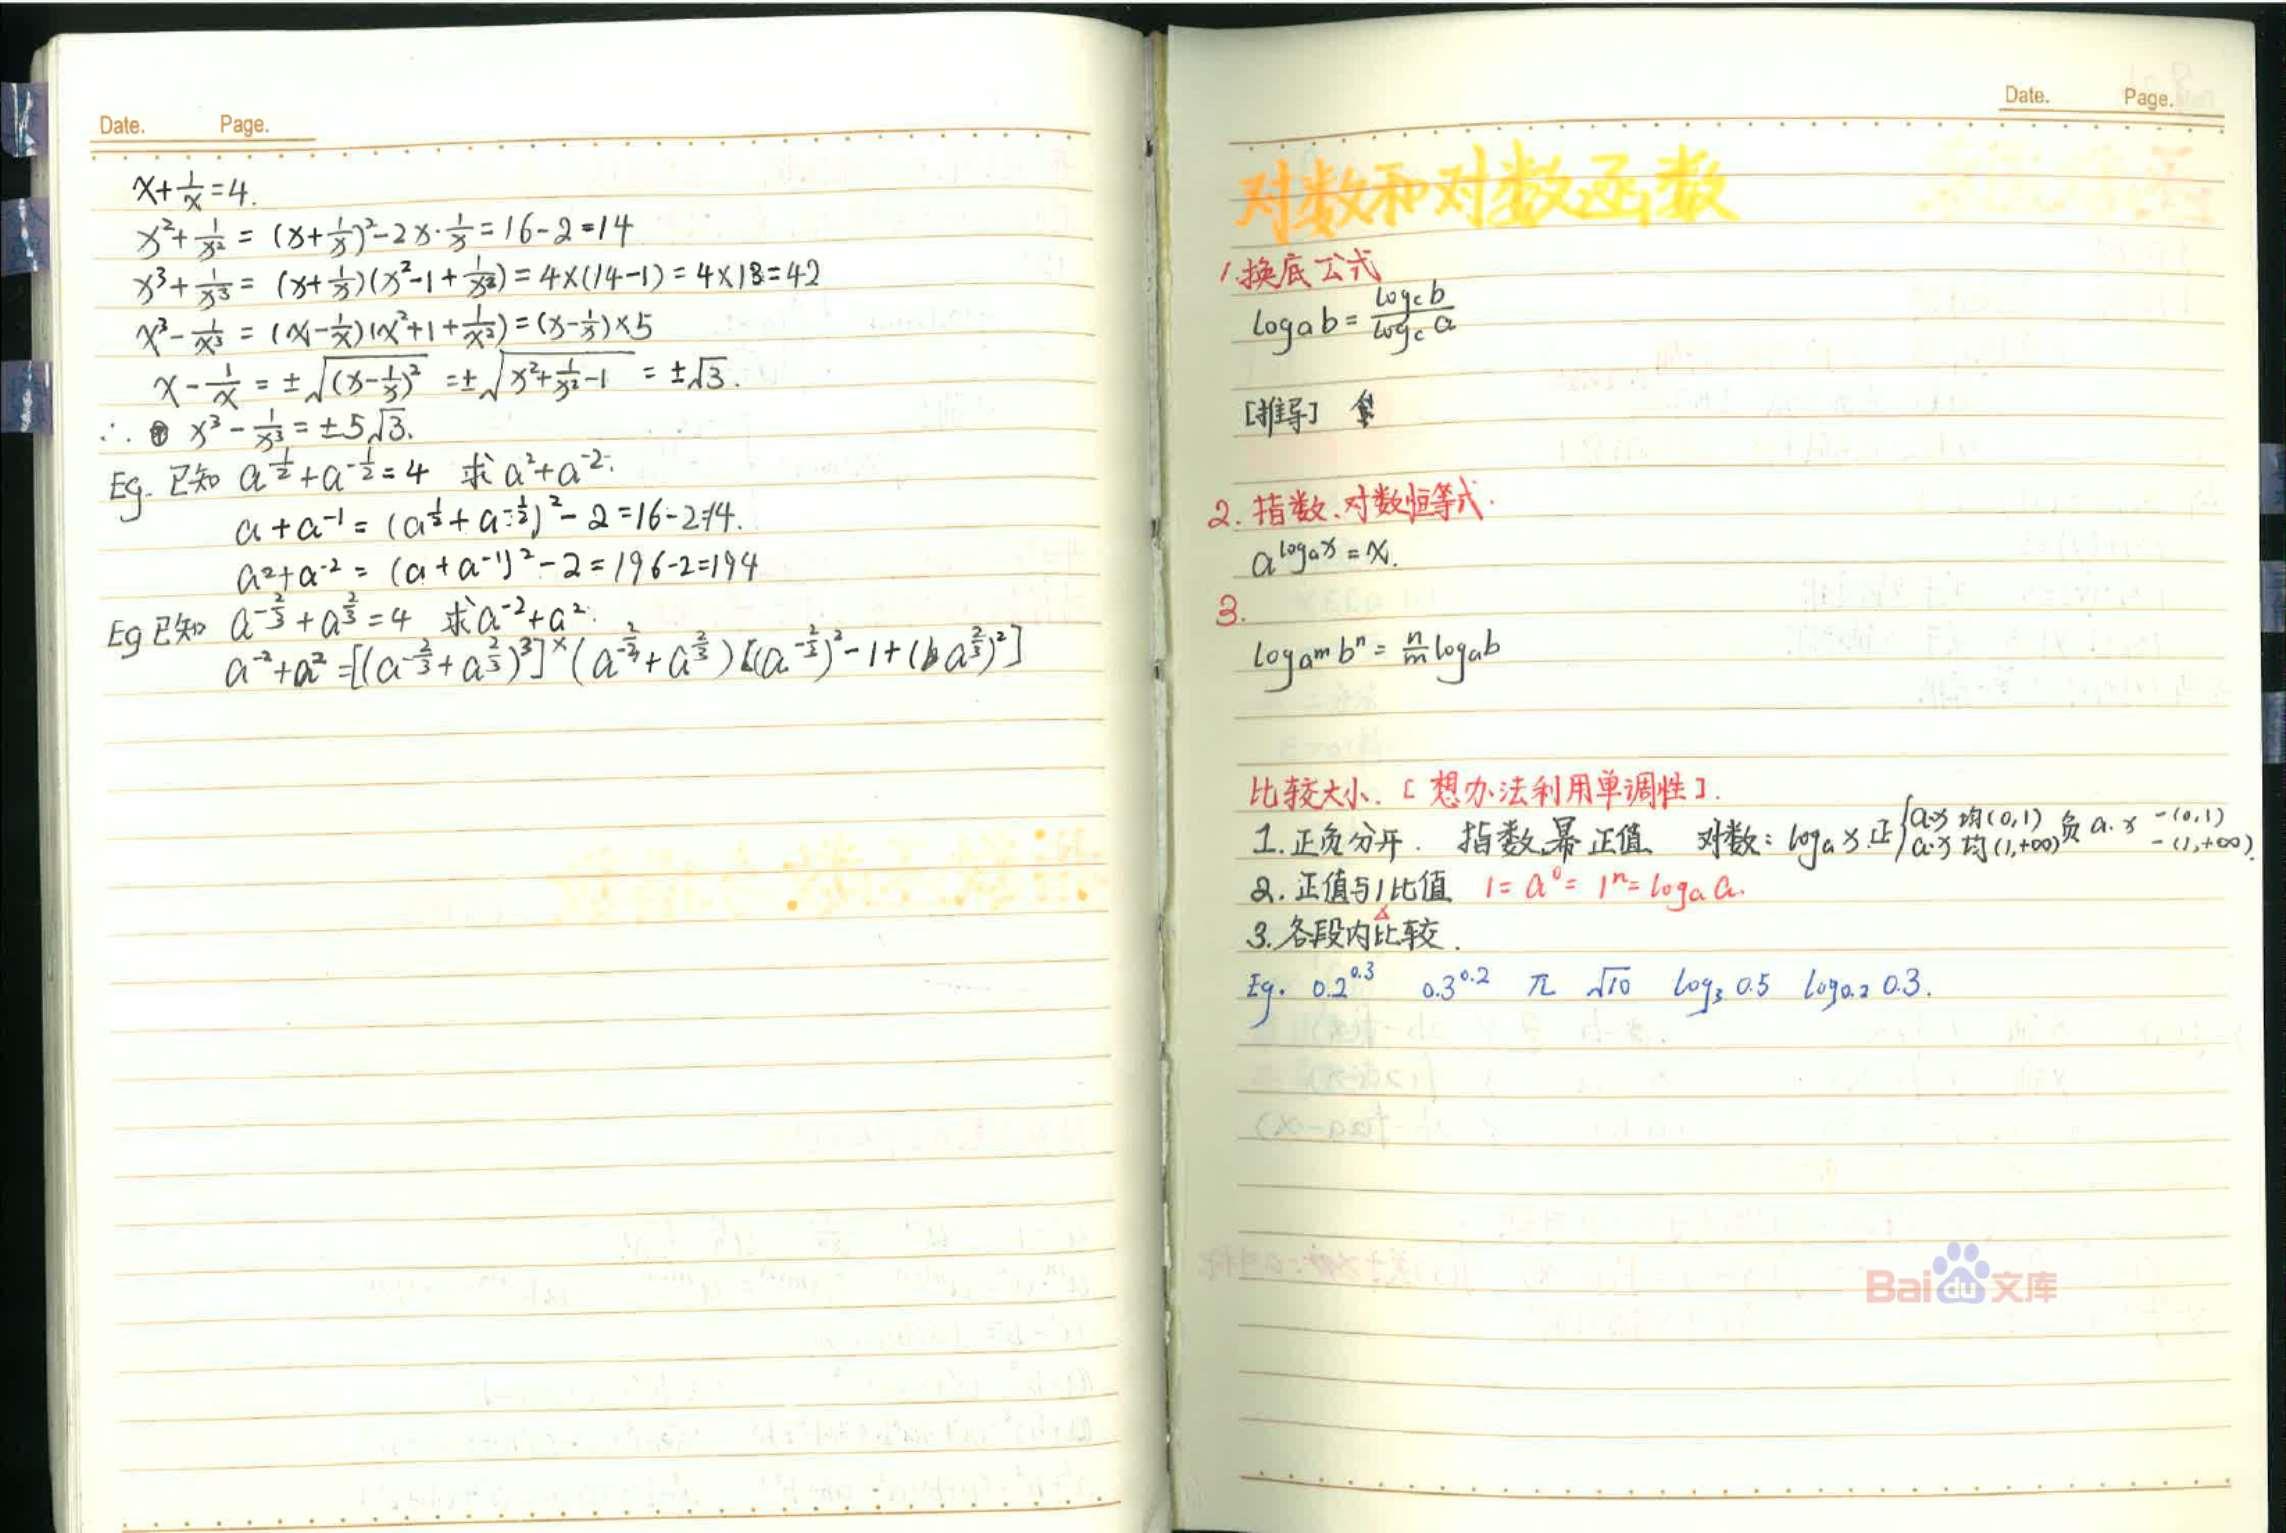 Date. Page.
x+1/x=4.
x²+1/x²=(x+1/x)²-2x·1/x=16-2=14
x³+1/x³=(x+1/x)(x²-1+1/x²)=4×(14-1)=4×13=42
x³-1/x³=(x-1/x)(x²+1+1/x²)=(x-1/x)×5
x-1/x=±√(x-1/x)²=±√x²+1/x²-1=±√3.
∴ x³-1/x³=±5√3.
Eg. 已知 a^½+a^-½=4 求a²+a^-2.
a+a^-1=(a^½+a^-½)²-2=16-2=14.
a²+a^-2=(a+a^-1)²-2=196-2=194
Eg 已知 a^-⅔+a^⅔=4 求a^-2+a²
a^-2+a²=[(a^-⅔+a^⅔)³]×(a^-⅔+a^⅔)[(a^-⅔)²-1+(a^⅔)²]
Date. Page.
对数和对数函数
1.换底公式
log_a b=log_c b/log_c a
[推导]
2.指数、对数恒等式.
a^log_a x=x.
3.
log_a^m b^n=n/m log_a b
比较大小.[想办法利用单调性].
1.正负分开. 指数,幂 正值 对数:log_a x 正{a.x 均(0,1) a.x 均(1,+∞) 负 a.x -(0,1) -(1,+∞).
2.正值与1比值 1=a^0=1^n=log_a a.
3.各段内比较.
Eg. 0.2^0.3 0.3^0.2 π √10 log_3 0.5 log_0.2 0.3.
Baidu文库